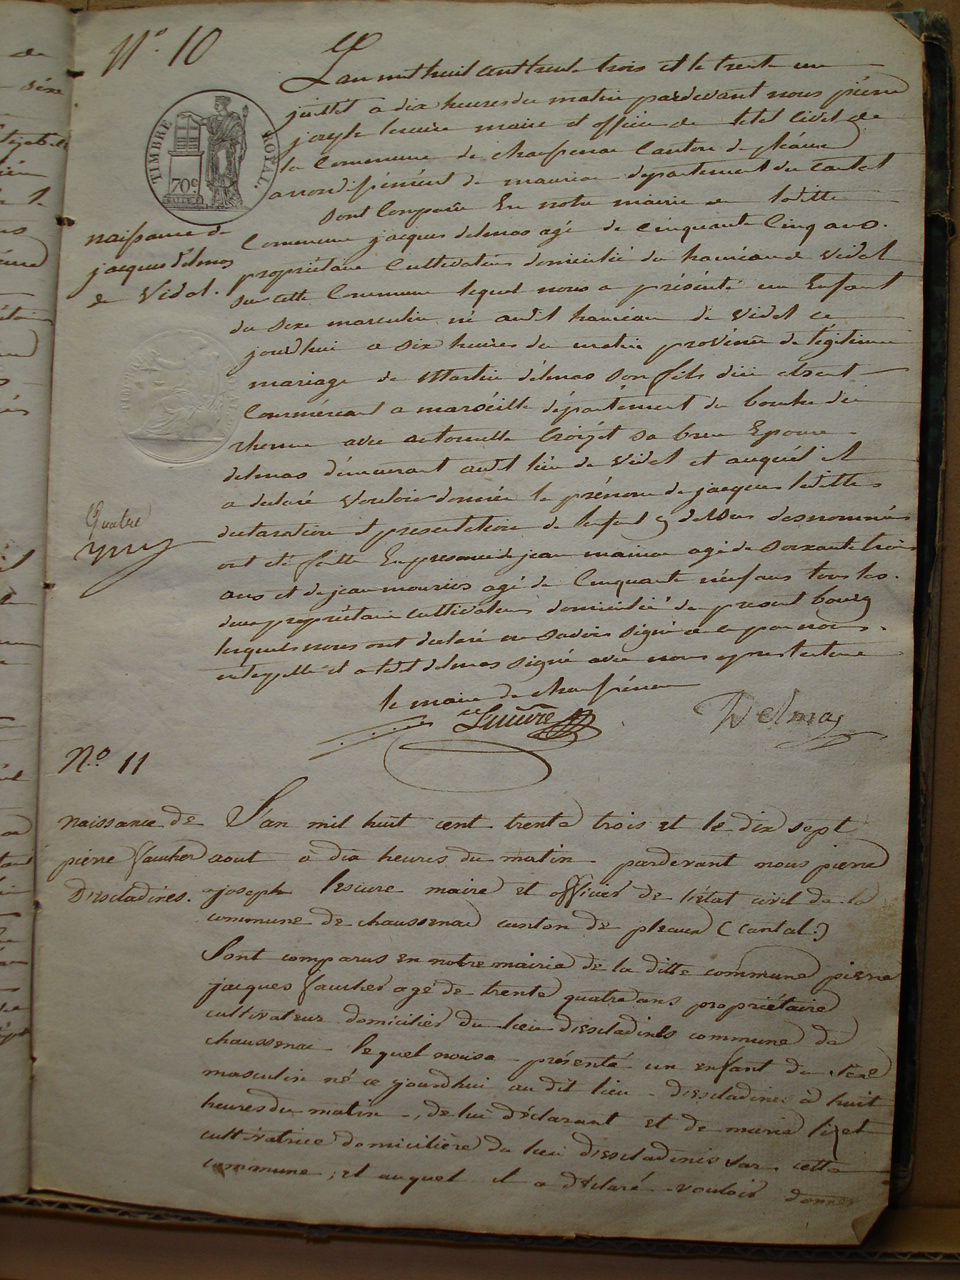 N.o 10
TIMBRE ROYAL.
70c
naissance de
jacques delmas
de Vidal.
Quatre
L'an mil huit cent trente trois et le trente un
juillet a dix heures du matin pardevant nous pierre
joseph lescure maire et officier de l'etat civil de
la Commune de chaussenac Canton de pleaux
arrondissement de mauriac departement du cantal
sont comparu En notre mairie de laditte
Commune jacques delmas agé de cinquante Cinq ans
propriétaire Cultivateur domicilié du hameau de Vidal
sur cette Commune lequel nous a présenté un Enfant
du sexe masculin né audit hameau de Vidal ce
jourd'hui a six heures du matin provénu de légitime
mariage de Martin delmas son fils absent
Commercant a marseille département de bouche du
rhonne avec antoinette sa bru Epouse
delmas démeurant audit lieu de Vidal et auquél il
a declaré Vouloir donnér le prénom de jacques laditte
declaration et presentation de l'enfant desnommés
ont eté faitte En presence de jean agé de soixante trois
ans et de jean mouries agé de Cinquante néuf ans tous les
deux propriétaire cultivateurs domicilié de présent bourg
lesquels nous ont declaré ne savoir signé de ce par nous
interpellé et a ledit delmas signé avec nous apres lecture
le maire de chaussénac
Lescure
Delmas
N.o 11
naissance de
pierre faucher
D'escladines.
L'an mil huit cent trente trois et le dix sept
aout a dix heures du matin pardevant nous pierre
joseph lescure maire et officier de l'etat civil de la
commune de chaussenac canton de pleaux (cantal.)
Sont comparus en notre mairie de la ditte commune pierre
jacques faucher agé de trente quatre ans propriétaire
cultivateur domicilier du lieu d'escladines commune de
chaussenac lequel nous a présenté un enfant du sexe
masculin né ce jourdhui au dit lieu d'escladines a huit
heures du matin, de lui déclarant et de marie lizet
cultivatrice domicilière du lieu d'escladines sur cette
commune; et auquel il a déclaré vouloir donner